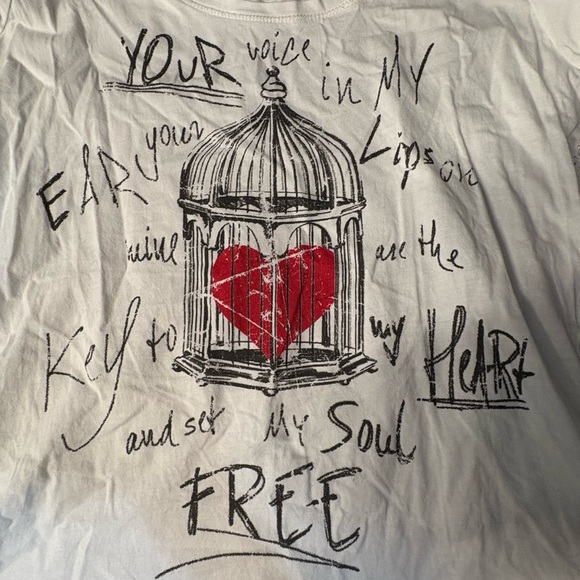 YOUR voice in MY
EAR your Lips on
mine are the
Key to my HeART
and set My Soul
FREE